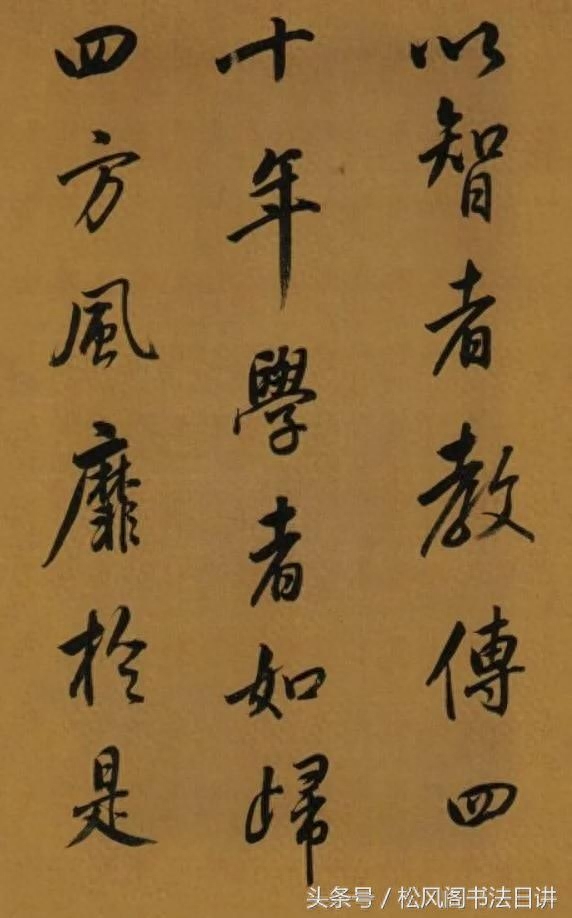 以智者教傳四
十年學者如歸
四方風靡於是
头条号／松风阁书法日讲